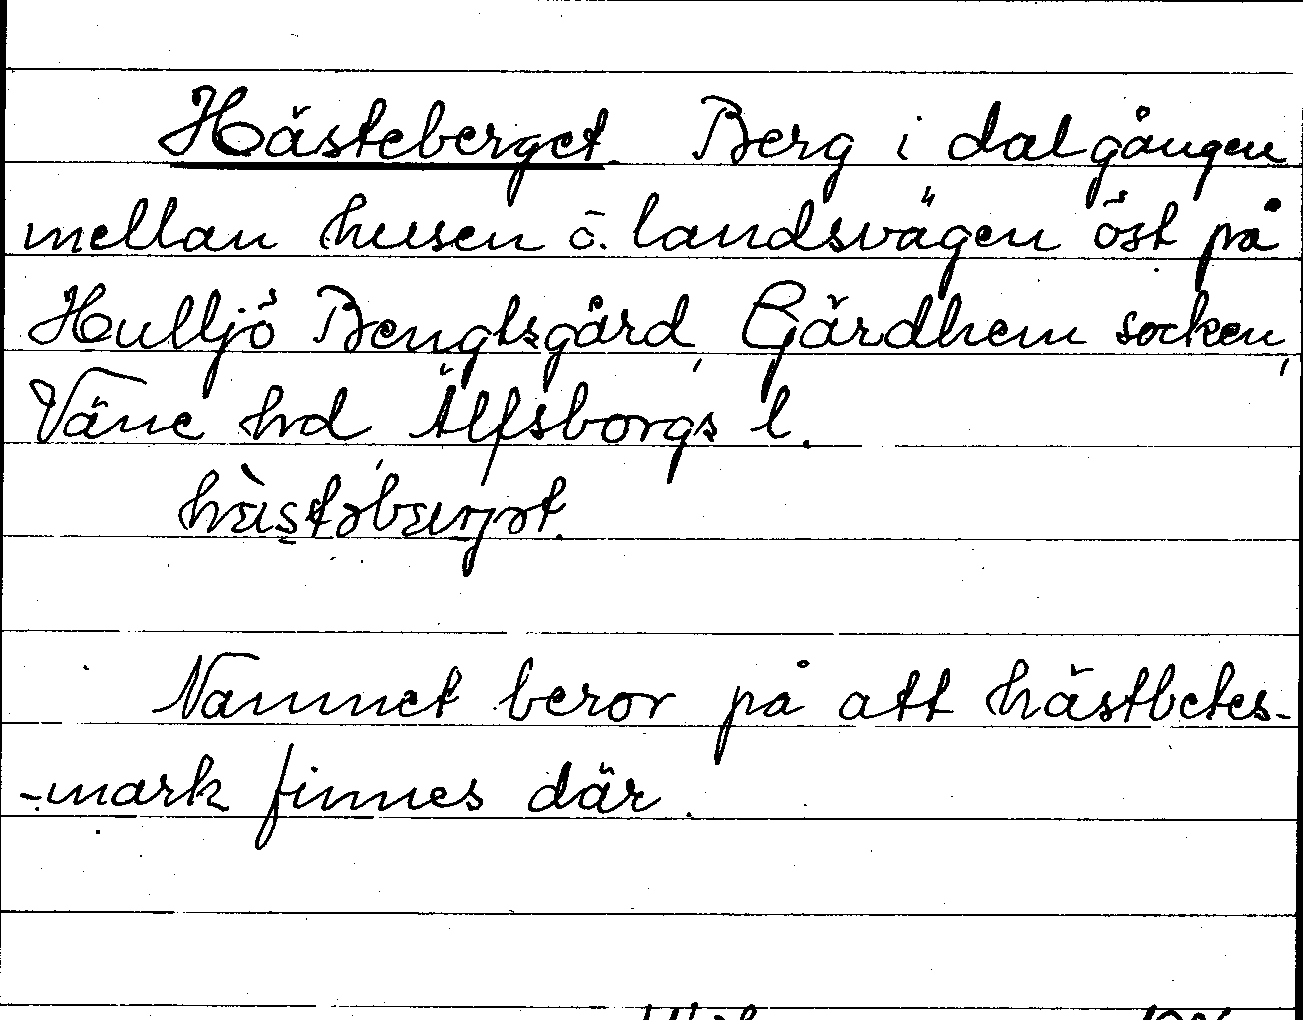 Hästeberget. Berg i dalgången
mellan husen o. landsvägen öst på
Hulljö Bengtsgård, Gärdhem socken,
Väne hrd Älfsborgs l.
hæ̀stəbærjət.
Namnet beror på att hästbetes-
-mark finnes där.